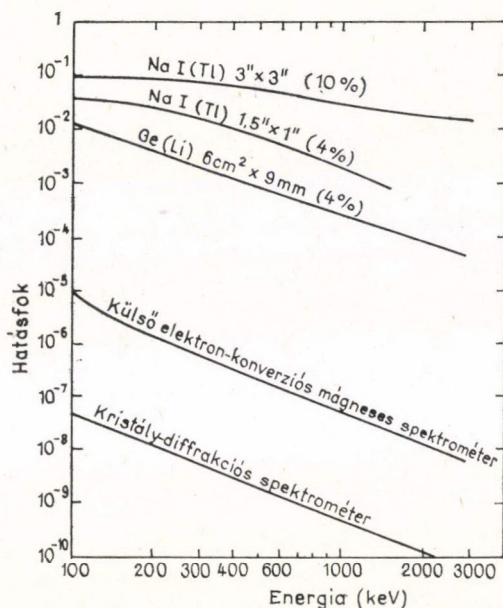 1
10⁻¹
10⁻²
10⁻³
10⁻⁴
10⁻⁵
10⁻⁶
10⁻⁷
10⁻⁸
10⁻⁹
10⁻¹⁰
Hatásfok
Na I (Tl) 3"x 3" (10%)
Na I (Tl) 1,5"x 1" (4%)
Ge (Li) 6cm² x 9mm (4%)
Külső elektron-konverziós mágneses spektrométer
Kristály-diffrakciós spektrométer
100 200 300 400 600 1000 2000 3000
Energia (keV)